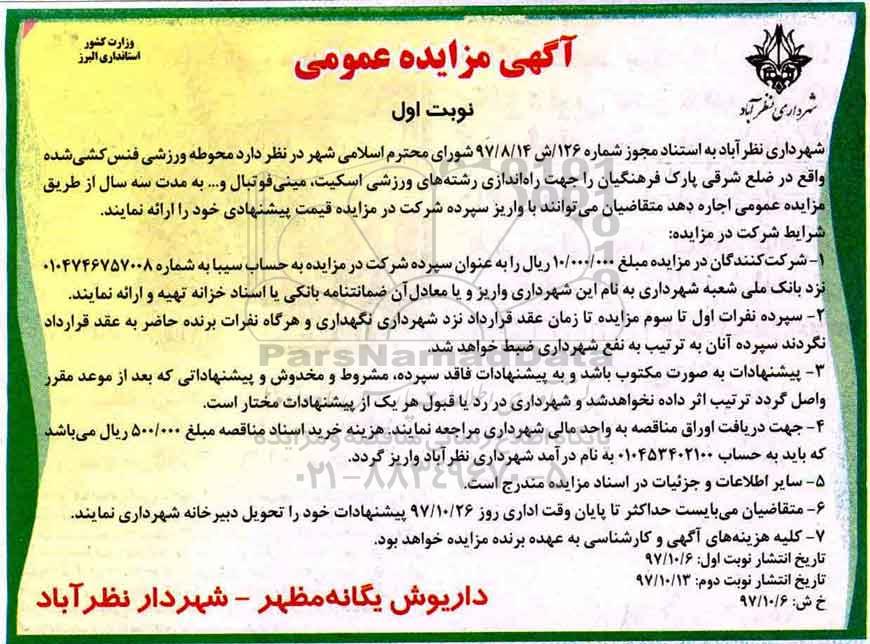 وزارت کشور
استانداری البرز
شهرداری نظرآباد
آگهی مزایده عمومی
نوبت اول
شهرداری نظرآباد به استناد مجوز شماره ۱۲۶/ش ۹۷/۸/۱۴ شورای محترم اسلامی شهر در نظر دارد محوطه ورزشی فنس‌کشی‌شده
واقع در ضلع شرقی پارک فرهنگیان را جهت راه‌اندازی رشته‌های ورزشی اسکیت، مینی‌فوتبال و... به مدت سه سال از طریق
مزایده عمومی اجاره دهد متقاضیان می‌توانند با واریز سپرده شرکت در مزایده قیمت پیشنهادی خود را ارائه نمایند.
شرایط شرکت در مزایده:
۱- شرکت‌کنندگان در مزایده مبلغ ۱۰/۰۰۰/۰۰۰ ریال را به عنوان سپرده شرکت در مزایده به حساب سیبا به شماره ۰۱۰۴۷۴۶۷۵۷۰۰۸
نزد بانک ملی شعبه شهرداری به نام این شهرداری واریز و یا معادل آن ضمانتنامه بانکی یا اسناد خزانه تهیه و ارائه نمایند.
۲- سپرده نفرات اول تا سوم مزایده تا زمان عقد قرارداد نزد شهرداری نگهداری و هرگاه نفرات برنده حاضر به عقد قرارداد
نگردند سپرده آنان به ترتیب به نفع شهرداری ضبط خواهد شد.
۳- پیشنهادات به صورت مکتوب باشد و به پیشنهادات فاقد سپرده، مشروط و مخدوش و پیشنهاداتی که بعد از موعد مقرر
واصل گردد ترتیب اثر داده نخواهدشد و شهرداری در رد یا قبول هر یک از پیشنهادات مختار است.
۴- جهت دریافت اوراق مناقصه به واحد مالی شهرداری مراجعه نمایند. هزینه خرید اسناد مناقصه مبلغ ۵۰۰/۰۰۰ ریال می‌باشد
که باید به حساب ۰۱۰۴۵۳۴۰۲۱۰۰ به نام درآمد شهرداری نظرآباد واریز گردد.
۵- سایر اطلاعات و جزئیات در اسناد مزایده مندرج است.
۶- متقاضیان می‌بایست حداکثر تا پایان وقت اداری روز ۹۷/۱۰/۲۶ پیشنهادات خود را تحویل دبیرخانه شهرداری نمایند.
۷- کلیه هزینه‌های آگهی و کارشناسی به عهده برنده مزایده خواهد بود.
تاریخ انتشار نوبت اول: ۹۷/۱۰/۶
تاریخ انتشار نوبت دوم: ۹۷/۱۰/۱۳
خ ش: ۹۷/۱۰/۶
داریوش یگانه‌مظهر - شهردار نظرآباد
ParsNamadData
پایگاه اطلاع رسانی مناقصه و مزایده
۰۲۱-۸۸۳۴۹۶۷۰-۵